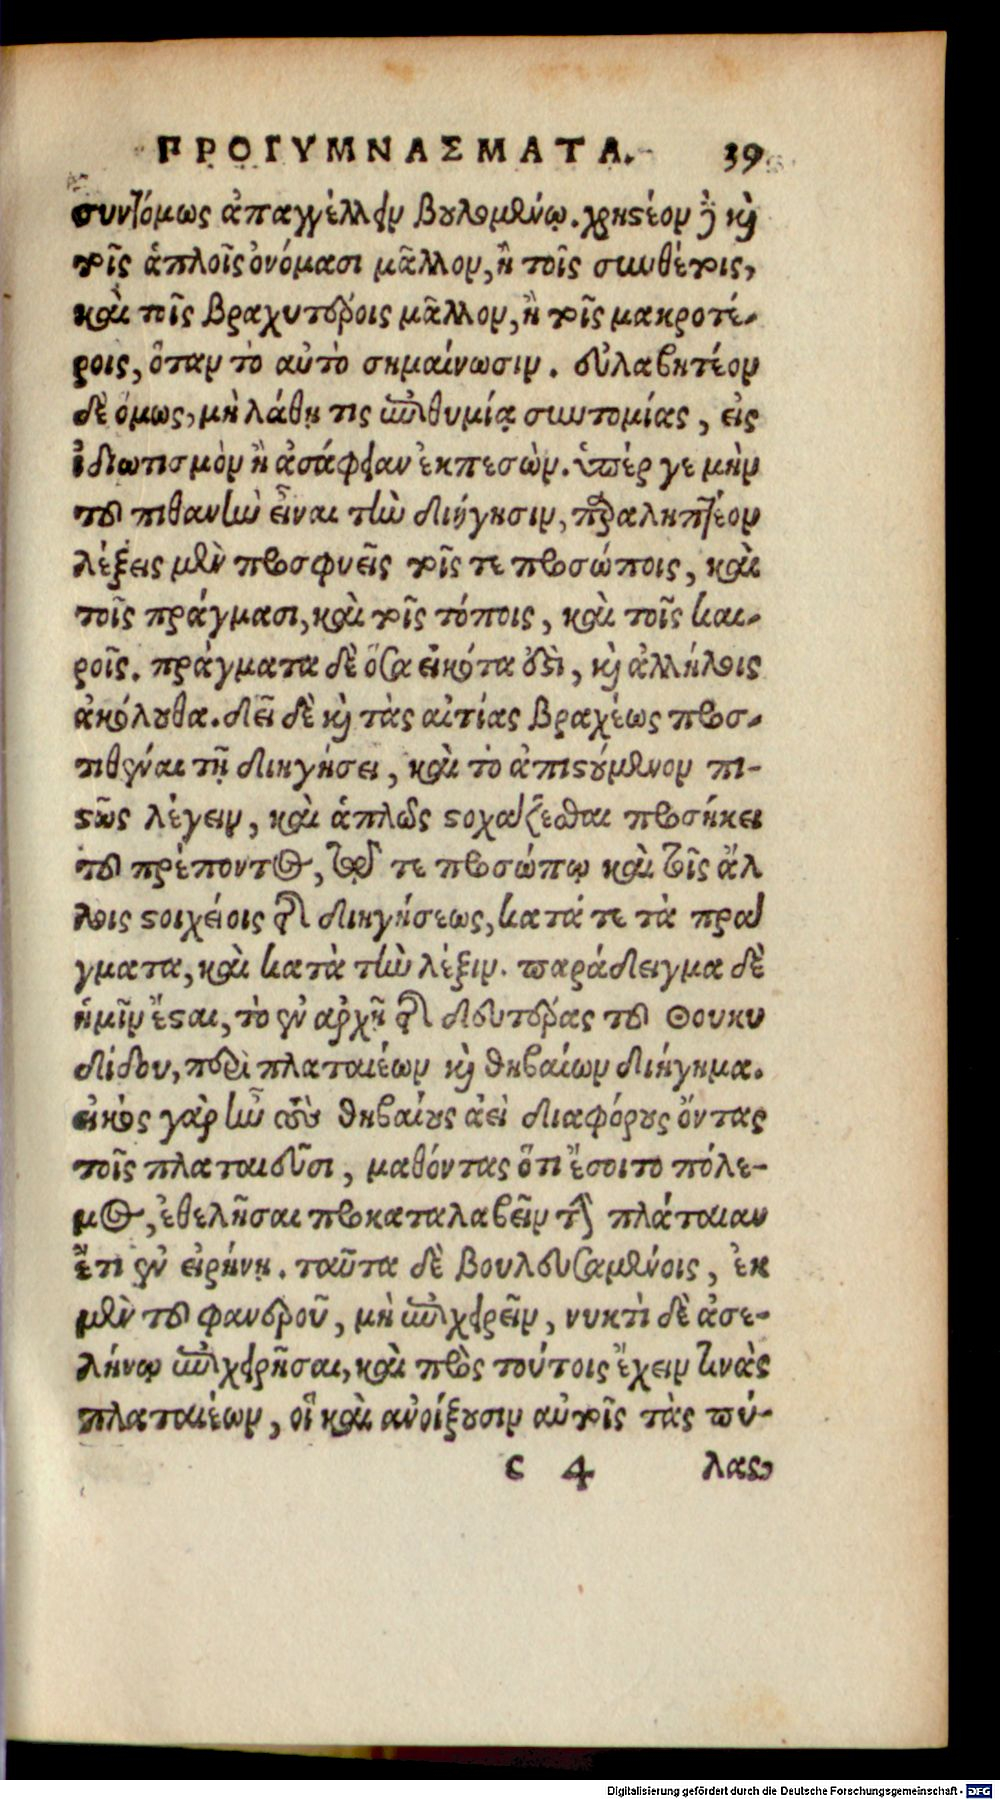 ΠΡΟΓΥΜΝΑΣΜΑΤΑ. 39
συντόμως ἀπαγγέλλειν βουλομένῳ. χρηστέον δὲ καὶ
τοῖς ἁπλοῖς ὀνόμασι μᾶλλον, ἢ τοῖς συνθέτοις,
καὶ τοῖς βραχυτέροις μᾶλλον, ἢ τοῖς μακροτέ-
ροις, ὅταν τὸ αὐτὸ σημαίνωσιν. εὐλαβητέον
δὲ ὅμως, μὴ λάθῃ τις ἐπιθυμίᾳ συντομίας, εἰς
ἰδιωτισμὸν ἢ ἀσάφειαν ἐκπεσών. ὑπέρ γε μὴν
τοῦ πιθανὴν εἶναι τὴν διήγησιν, παραληπτέον
λέξεις μὲν προσφυεῖς τοῖς τε προσώποις, καὶ
τοῖς πράγμασι, καὶ τοῖς τόποις, καὶ τοῖς και-
ροῖς. πράγματα δὲ ὅσα εἰκότα ἐστὶ, καὶ ἀλλήλοις
ἀκόλουθα. δεῖ δὲ καὶ τὰς αἰτίας βραχέως προσ-
τιθέναι τῇ διηγήσει, καὶ τὸ ἀπιστούμενον πι-
στῶς λέγειν, καὶ ἁπλῶς στοχάζεσθαι προσήκει
τοῦ πρέποντος, τῷ τε προσώπῳ καὶ τοῖς ἄλ
λοις στοιχείοις τῆς διηγήσεως, κατά τε τὰ πρά
γματα, καὶ κατὰ τὴν λέξιν. παράδειγμα δὲ
ἡμῖν ἔσται, τὸ ἐν ἀρχῇ τῆς δευτέρας τοῦ Θουκυ
δίδου, περὶ πλαταιέων καὶ θηβαίων διήγημα.
εἰκὸς γὰρ ἦν τοὺς θηβαίους ἀεὶ διαφόρους ὄντας
τοῖς πλαταιεῦσι, μαθόντας ὅτι ἔσοιτο πόλε-
μος, ἐθελῆσαι προκαταλαβεῖν τὴν πλάταιαν
ἔτι ἐν εἰρήνῃ. ταῦτα δὲ βουλευσαμένοις, ἐκ
μὲν τοῦ φανεροῦ, μὴ ἐπιχειρεῖν, νυκτὶ δὲ ἀσε-
λήνῳ ἐπιχειρῆσαι, καὶ πρὸς τούτοις ἔχειν τινὰς
πλαταιέων, οἳ καὶ ἀνοίξουσιν αὐτοῖς τὰς πύ-
c 4 λας,
Digitalisierung gefördert durch die Deutsche Forschungsgemeinschaft - DFG